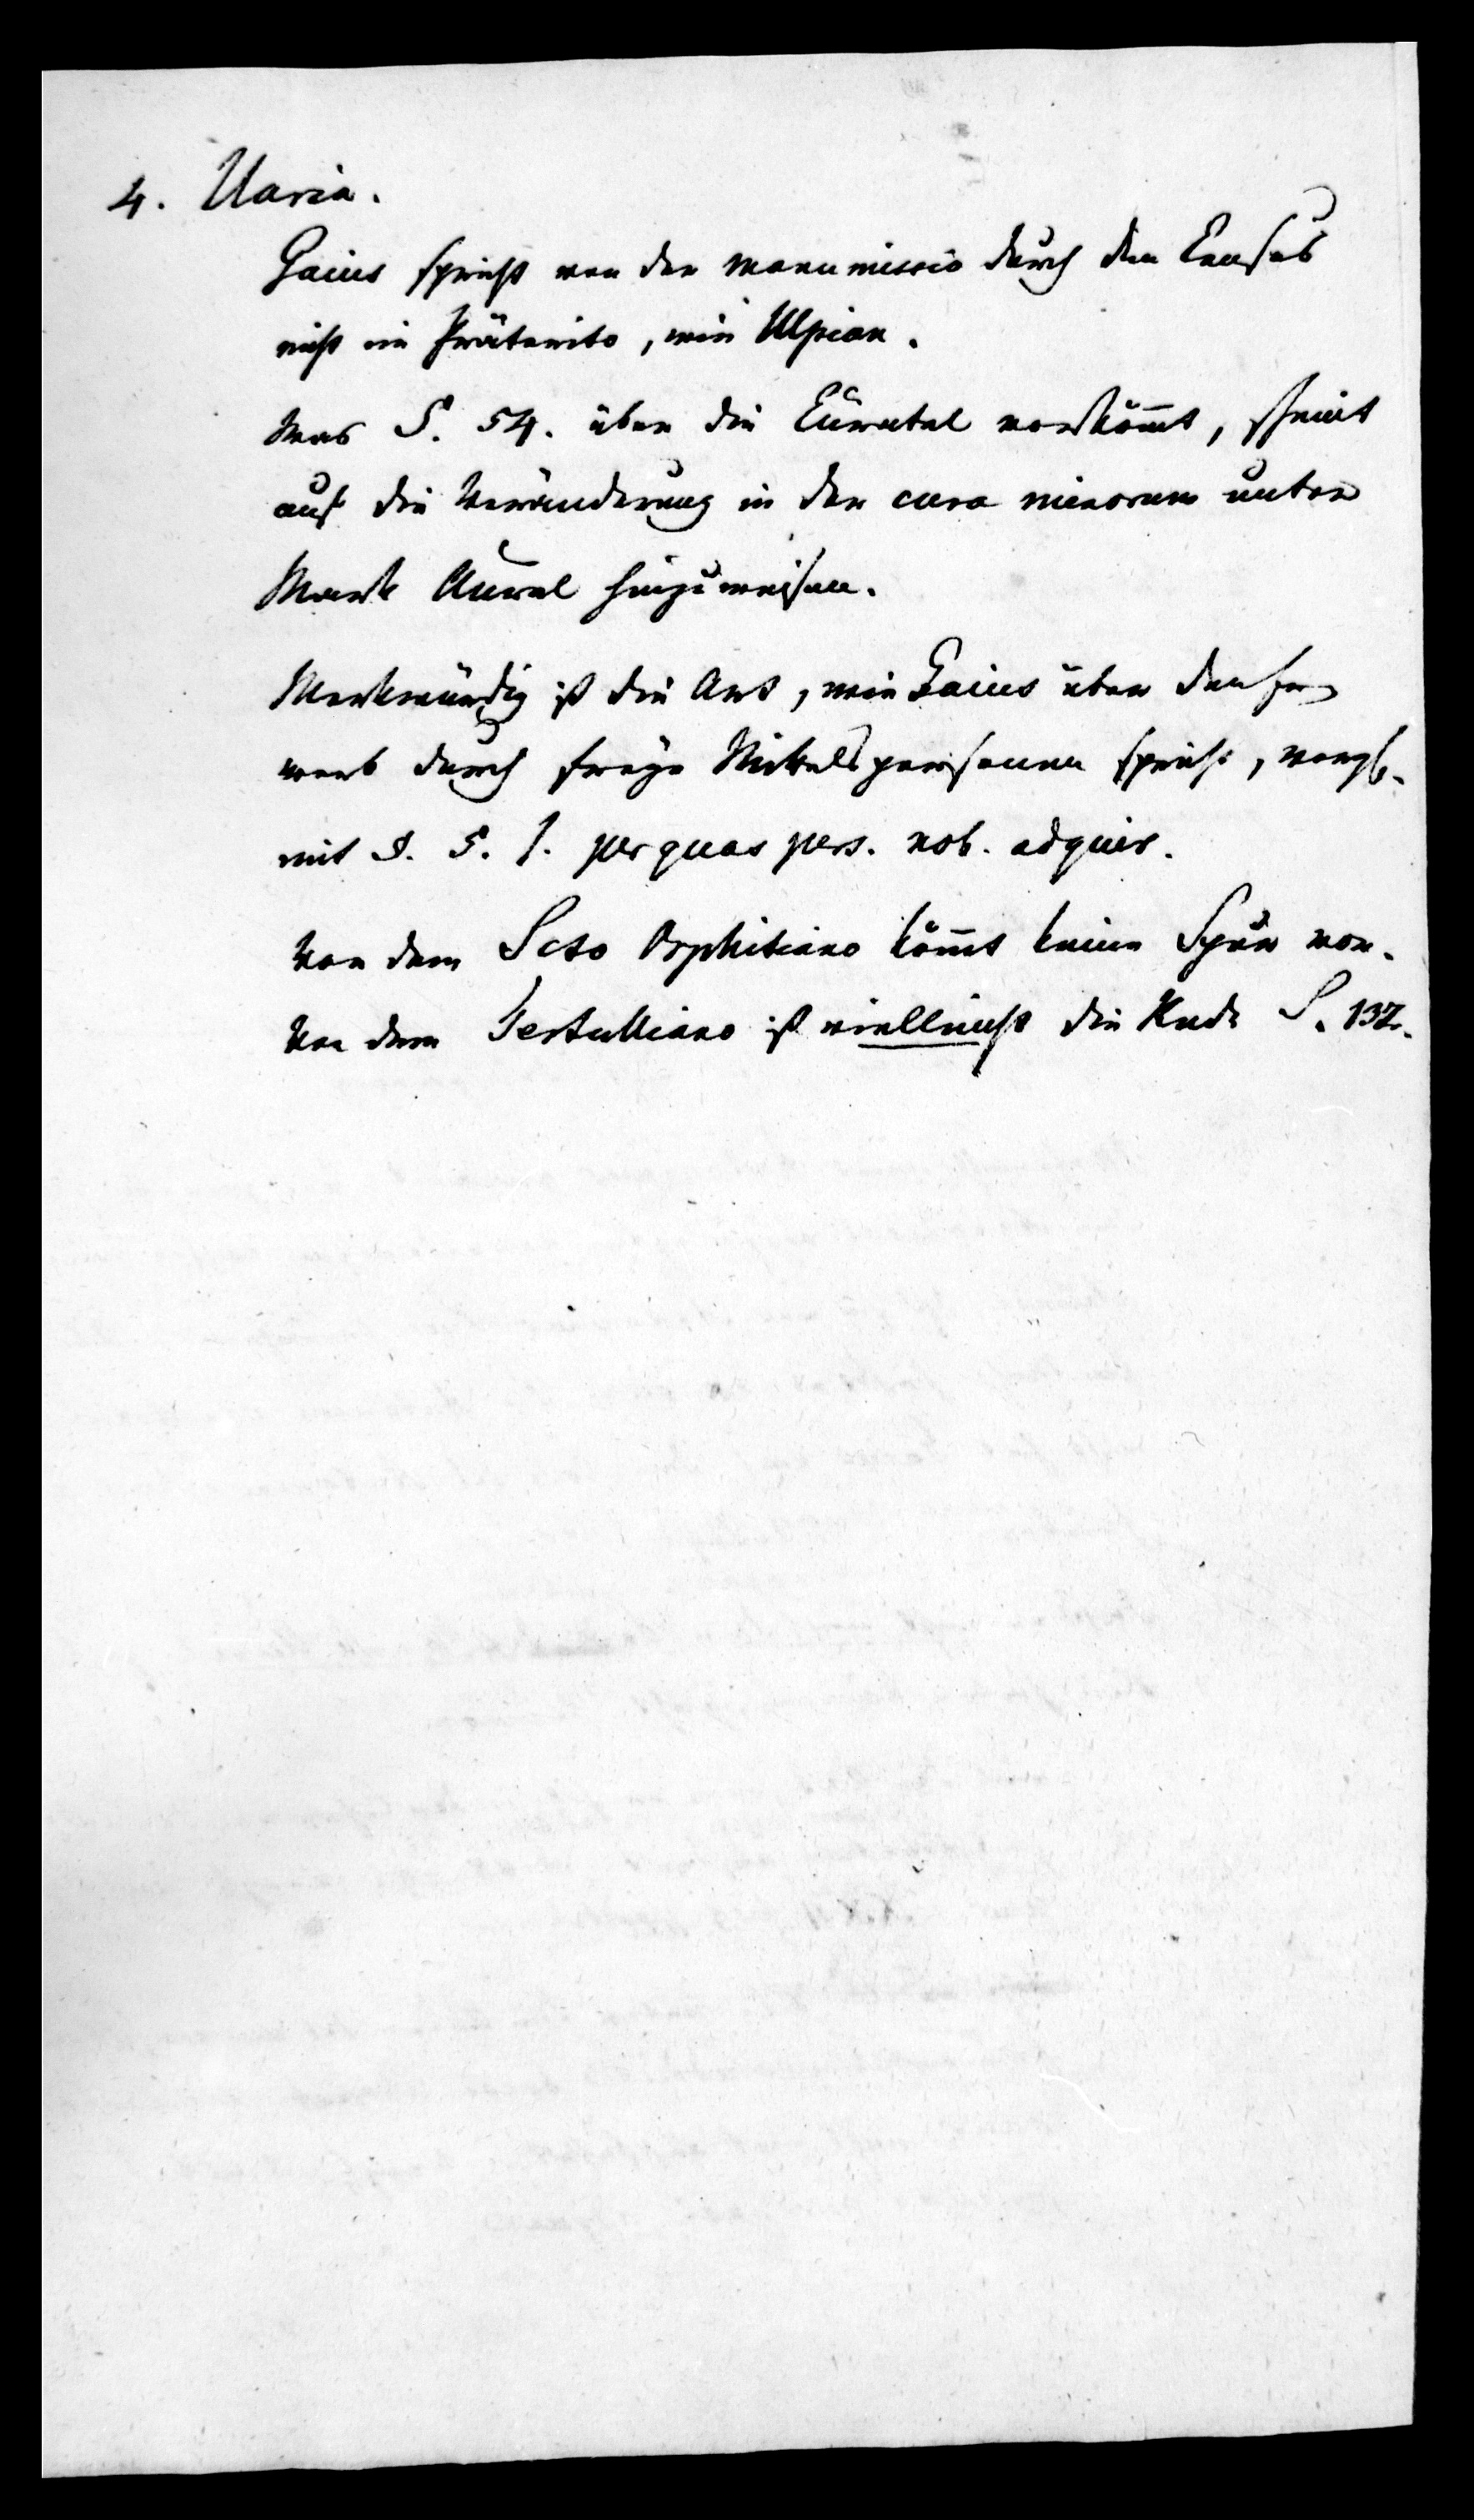 4. Varia.
Gaius spricht von der manumissio durch den Census
nicht im Präterito, wie Ulpian.
Was S. 54. über die Curatel vorkom̃t, scheint
auf die Veränderung in der cura minorum unter
Mark Aurel hinzuweisen.
Merkwürdig ist die Art, wie Gaius über den Er
werb durch freye Mittelspersonen spricht, vergl.
mit §. 5. I. per quas pers. nob. adquir.
Von dem Scto Orphitiano kom̃t keine Spur vor.
Von dem Tertulliano ist vielleicht die Rede S. 137.